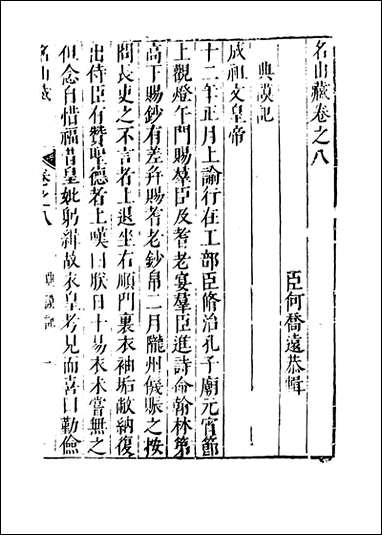 名山藏卷之八
臣何喬遠恭輯
典謨記
成祖文皇帝
十二年正月上諭行在工部臣修治孔子廟元宵節
上觀燈午門賜羣臣及耆老宴羣臣進詩命翰林第
高下賜鈔有差幷賜耆老鈔帛二月隴州饑賑之按
問長吏之不言者上退坐右順門裏衣袖垢敝納復
出侍臣有贊聖德者上嘆曰朕日十易衣木嘗無之
但念自惜福昔皇妣躬緝故衣皇考見而喜曰勤儉
名山藏 卷之八 典謨記 一